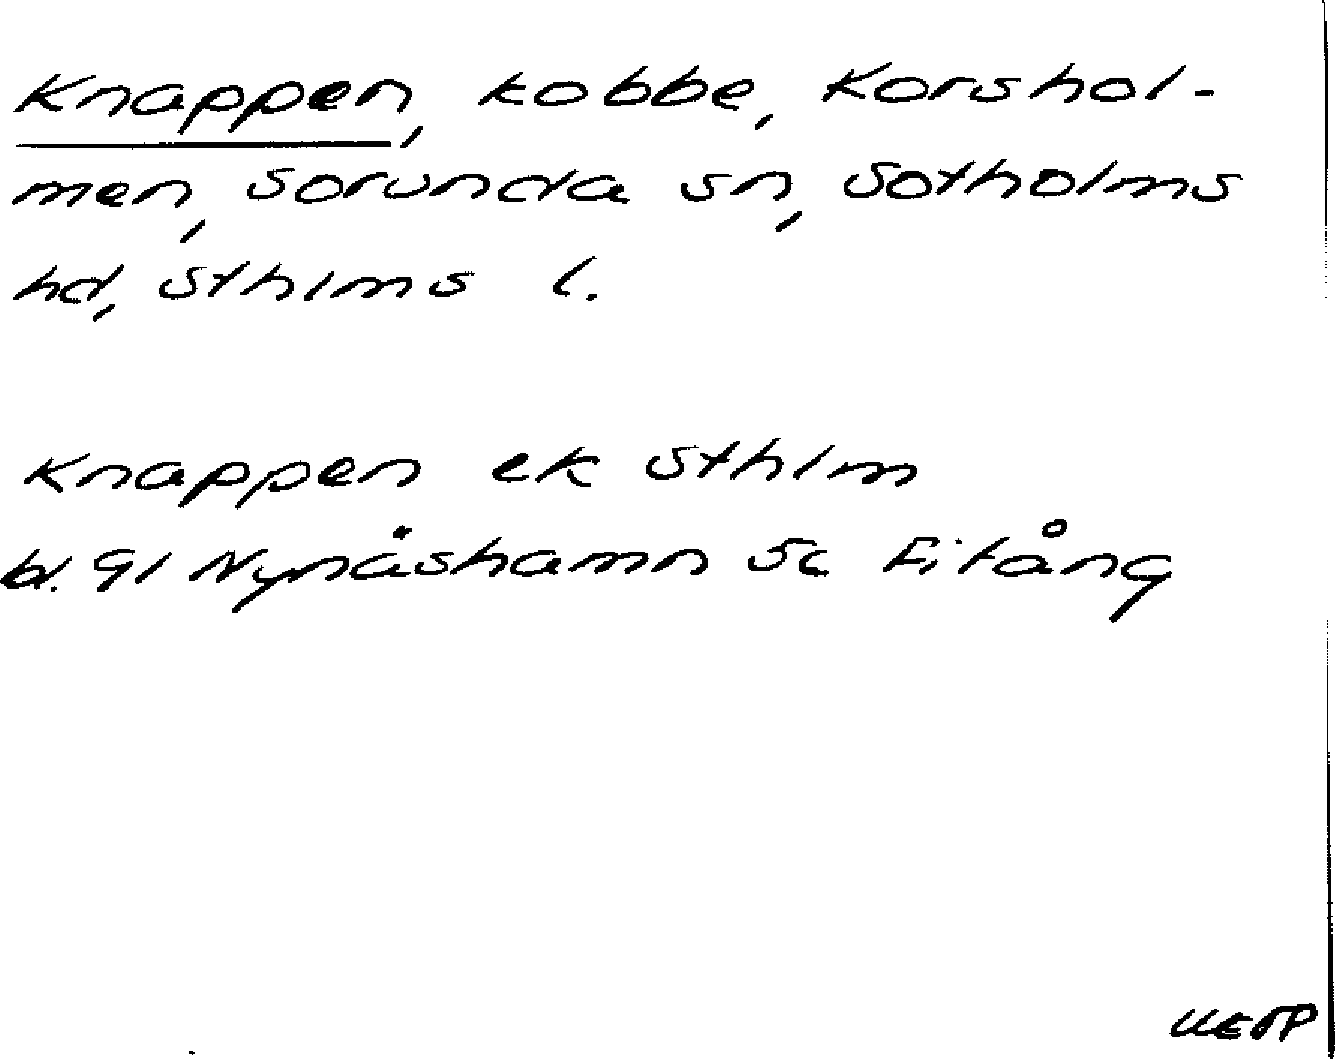 Knappen, kobbe, Korshol-
men, Sorunda sn, Sotholms
hd, Sthlms l.
Knappen ek Sthlm
bl. 91 Nynäshamn 5c Fitång